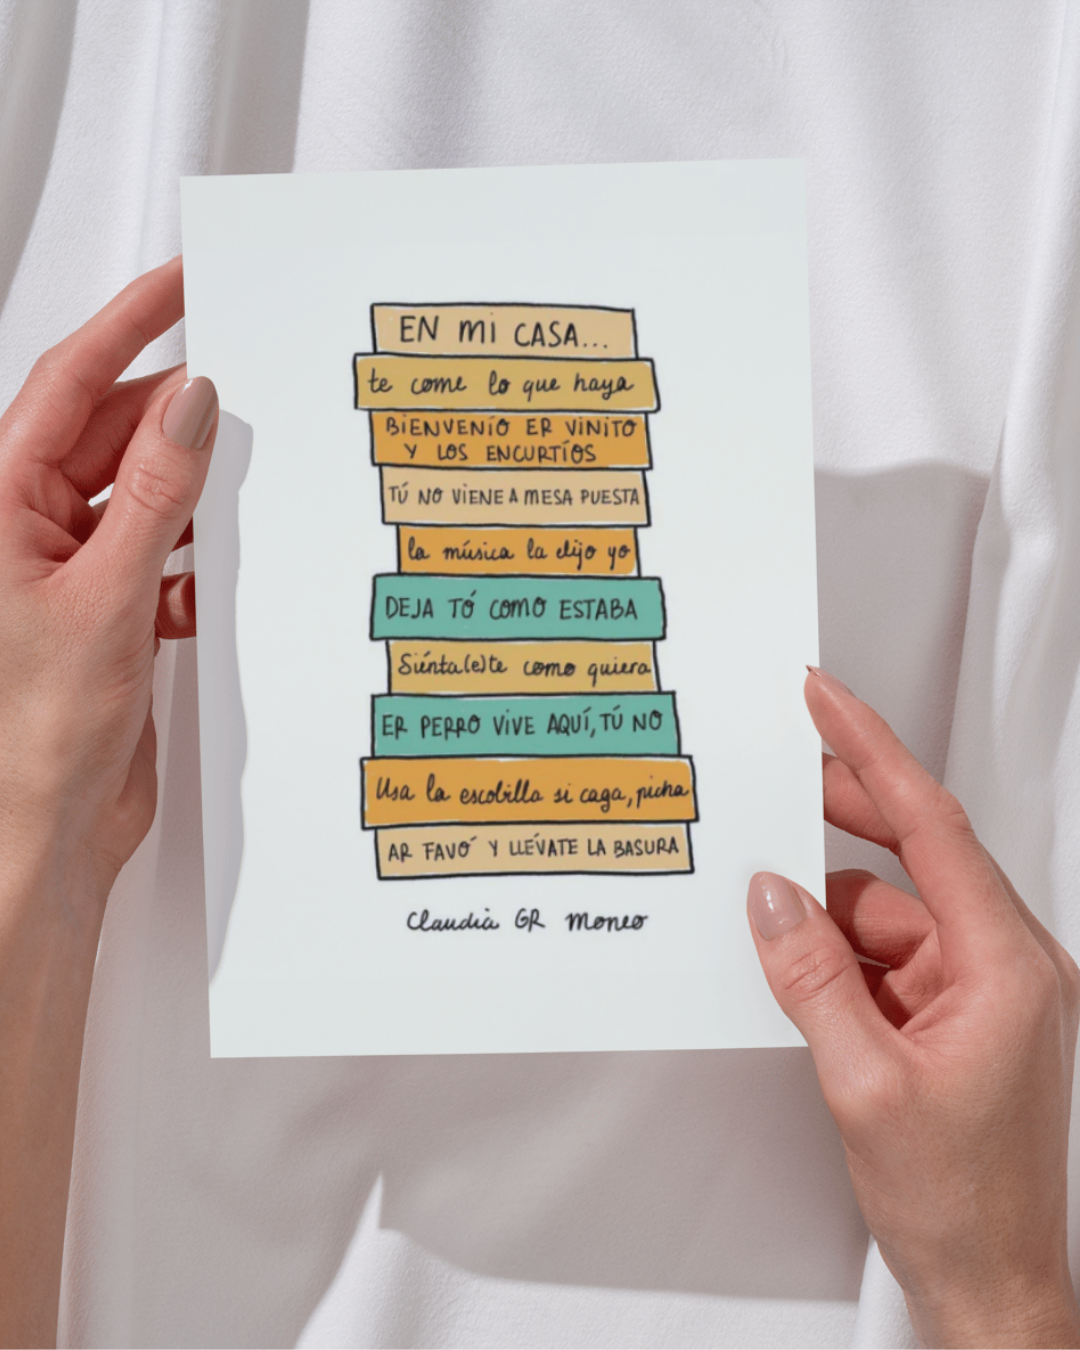 EN mi CASA...
te come lo que haya
BiENVENÍO ER ViNiTO
Y LOS ENCURTÍOS
TÚ NO ViENE A MESA PUESTA
la música la elijo yo
DEJA TÓ COMO ESTABA
Siénta(e)te como quiera
ER PERRO ViVE AQUÍ, TÚ NO
Usa la escobilla si caga, picha
AR FAVÓ Y LLÉVATE LA BASURA
Claudia GR Moneo